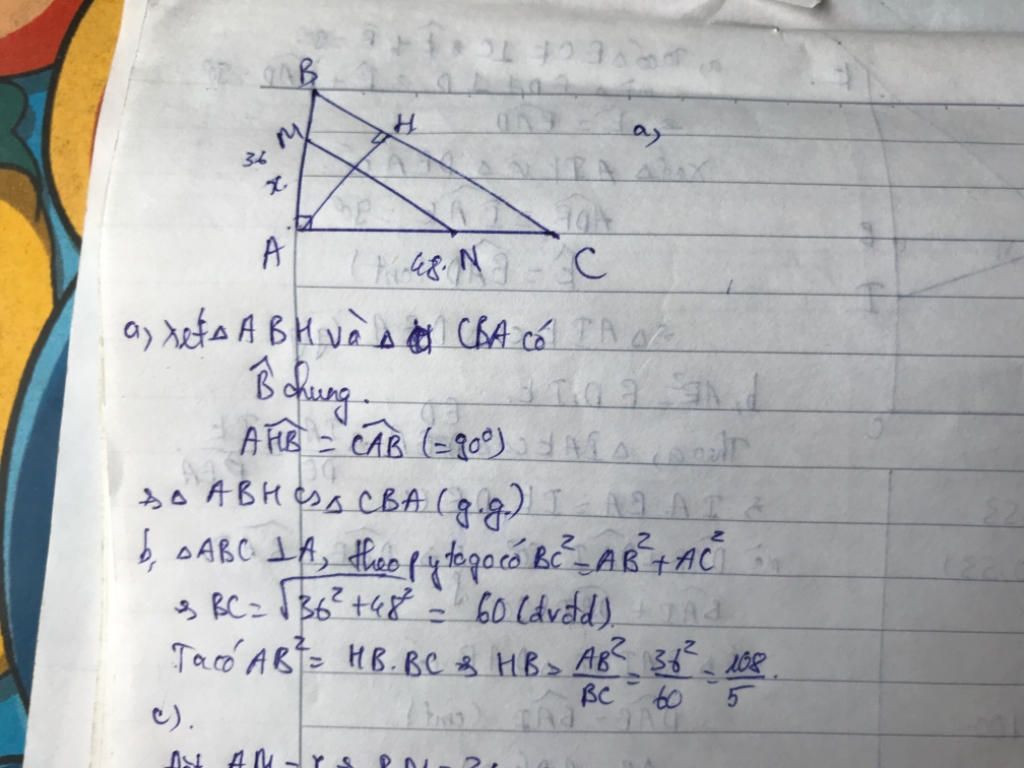 B
M
H
a,
36
x
A
48.
N
C
a, xét △ ABH và △ CBA có
B̂ chung.
AHB = CAB (=90°)
=> △ ABH ∽ △ CBA (g.g.)
b, △ABC ⊥ A, theo pytago có BC² = AB² + AC²
=> BC = √36² + 48² = 60 (đvđd).
Ta có AB² = HB.BC => HB = AB²/BC = 36²/60 = 108/5.
c).